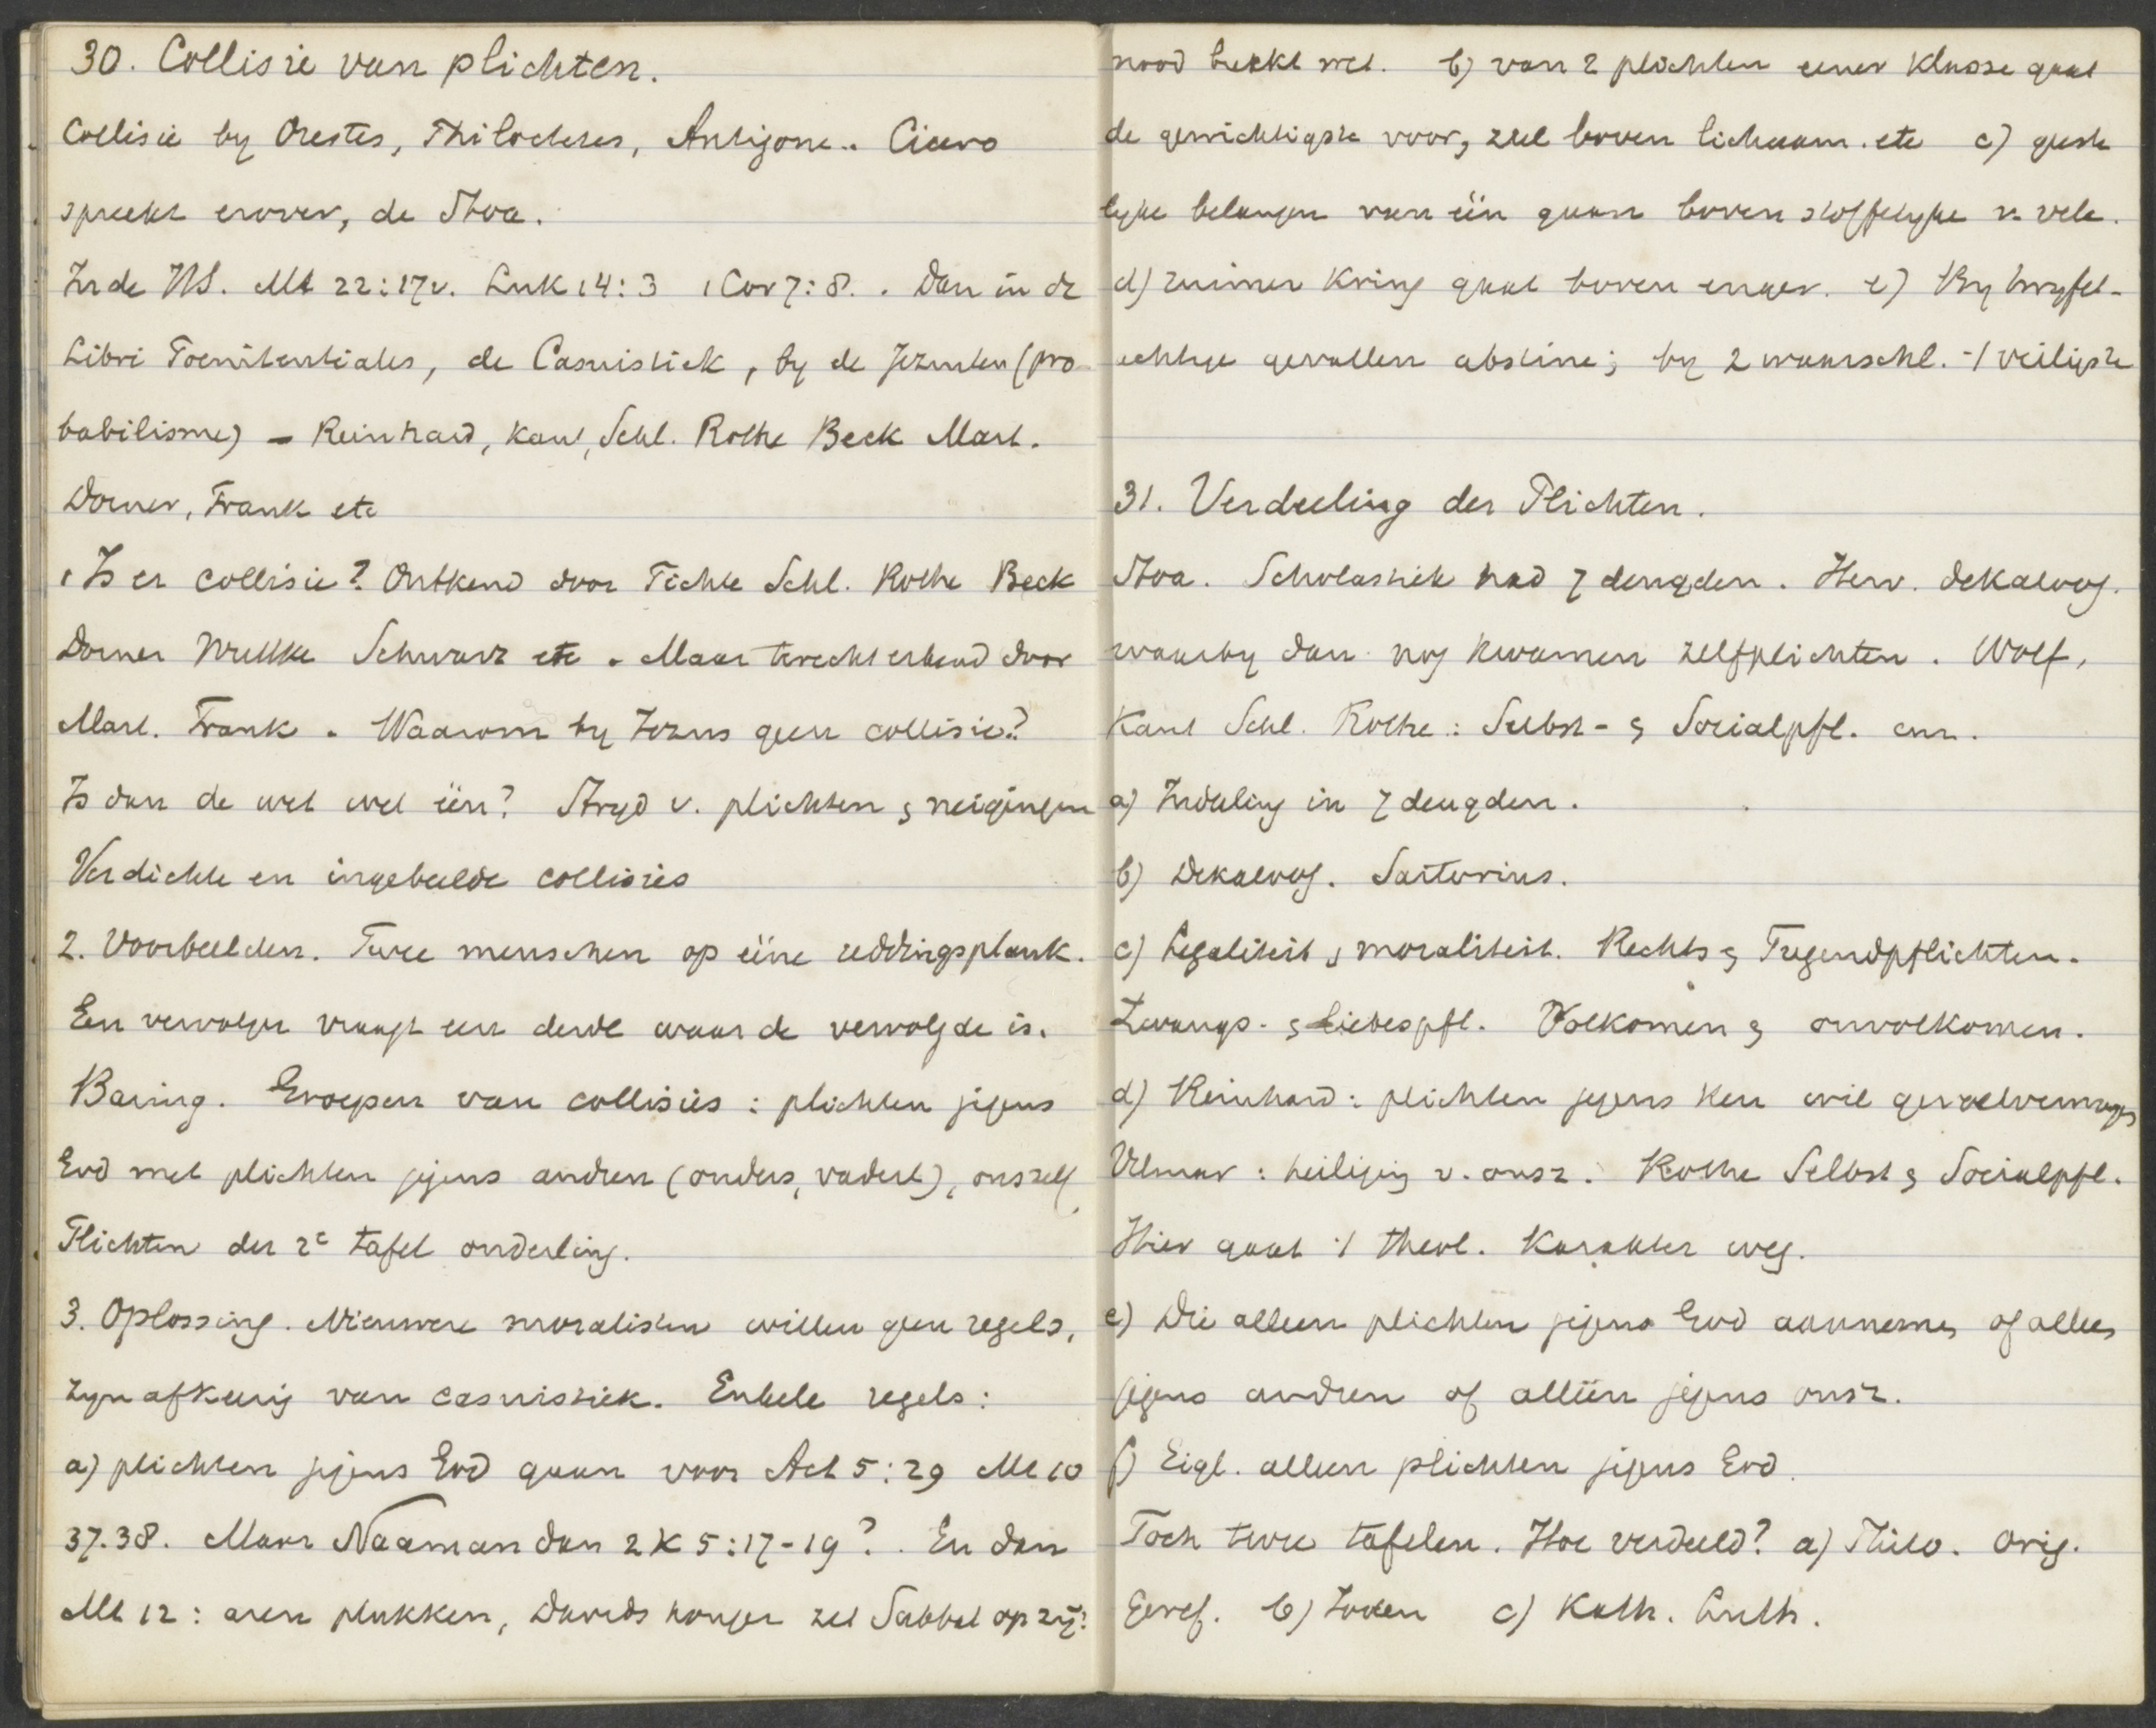 30. Collisie van plichten.
Collisie by Orestes, Philoctetes, Antigone.. Cicero
spreekt erover, de Stoa.
In de HS. Mt 22:17v. Luk 14:3 1 Cor 7:8. . Dan in de
Libri Poenitentiales, de Casuistiek, by de Jezuiten (pro-
babilisme) - Reinhard, Kant, Schl. Rothe Beck Mart.
Dorner, Frank etc
1 Is er collisie? Ontkend door Fichte Schl. Rothe Beck
Dorner Wuttke Schwarz etc. Maar terecht erkend door
Mart. Frank. Waarom by Jezus geen collisie?
Is dan de wet wel één? Stryd v. plichten & neigingen
Verdichte en ingebeelde collisies
2. Voorbeelden. Twee menschen op eene reddingsplank.
Een vervolger vraagt een derde waar de vervolgde is.
Baring. Groepen van collisies: plichten jegens
God met plichten jegens andren (ouders, vaderl), onszelf,
Plichten der 2e tafel onderling.
3. Oplossing. Nieuwere moralisten willen geen regels,
zyn afkeerig van casuistiek. Enkele regels:
a) plichten jegens God gaan voor Act 5:29 Mt 10
37.38. Maar Naaman dan 2 K 5:17-19? . En dan
Mt 12: aren plukken, Davids honger zet Sabbat op zij:
nood breekt wet. b) van 2 plichten eener klasse gaat
de gewichtigste voor, ziel boven lichaam. etc c) geeste
lyke belangen van één gaan boven stoffelyke v. vele.
d) ruimer kring gaat boven enger. e) By twyfel-
achtige gevallen abstine; by 2 waarschl. 't veiligste
31. Verdeeling der Plichten.
Stoa. Scholastiek had 7 deugden. Herv. dekaloog.
waarby dan nog kwamen zelfplichten. Wolf,
Kant Schl. Rothe: Selbst- & Socialpfl. enz.
a) Indeeling in 7 deugden.
b) Dekaloog. Sartorius.
c) Legaliteit & moraliteit. Rechts & Tugendpflichten.
Zwangs- & Liebespfl. Volkomen & onvolkomen.
d) Reinhard: plichten jegens ken wil gevoelvermogen
Vilmar: heiliging v. onsz. Rothe Selbst & Socialpfl.
Hier gaat 't theol. karakter weg.
e) Die alleen plichten jegens God aannemen, of alleen
jegens andren of alléén jegens onsz.
f) Eigl. alleen plichten jegens God.
Toch twee tafelen. Hoe verdeeld? a) Philo. Orig.
Geref. b) Joden c) Kath. Luth.